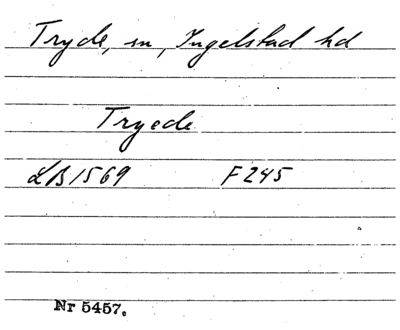 Tryde, sn, Ingelstad hd
Tryede
LB 1569 F 245
Nr 5457.